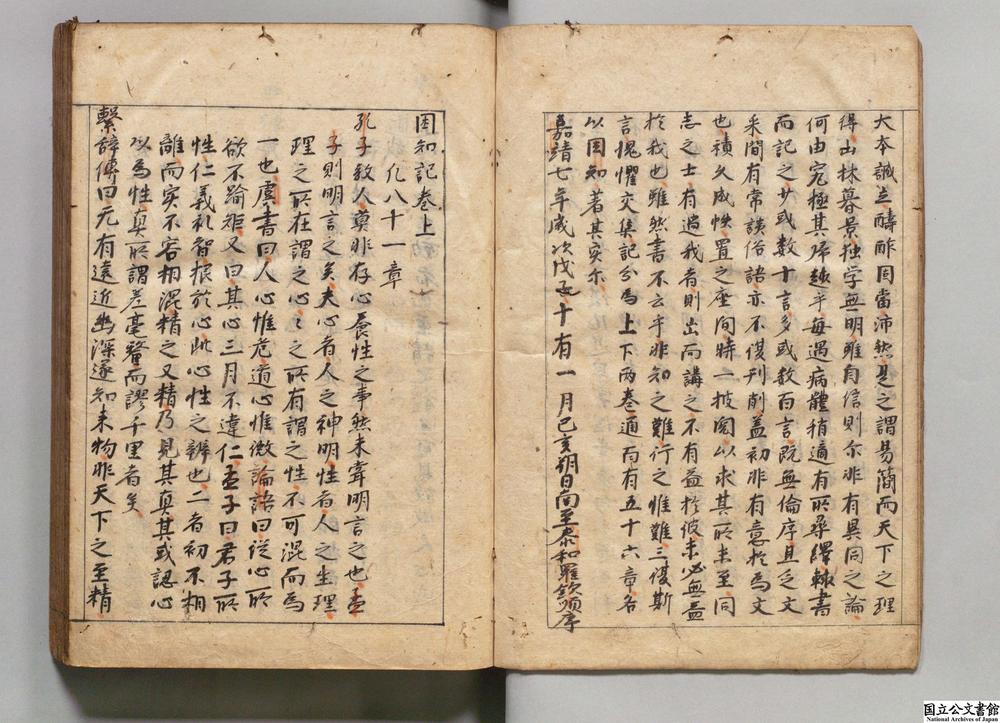 大本誠立酬酢固當沛然是之謂易簡而天下之理
得山林暮景独学無明雖自信則尓非有異同之論
何由究極其帰趣乎毎遇病體稍適有所尋繹輙書
而記之少或数十言多或数百言既無倫序且乏文
采間有常談俗語亦不復刊削盖初非有意於為文
也積久成帙置之座間時一披閲以求其所未至同
志之士有過我者則出而講之不有益於彼未必無益
於我也雖然書不云乎非知之難行之惟難三復斯
言愧懼交集記分為上下两巻通百有五十六章名
以困知著其実尓
嘉靖七年歳次戊子十有一月己亥朔日南至泰和羅欽順序
困知記巻上
凡八十一章
孔子教人莫非存心養性之事然未甞明言之也孟
子則明言之矣夫心者人之神明性者人之生理
理之所在謂之心々之所有謂之性不可混而為
一也虞書曰人心惟危道心惟微論語曰従心所
欲不踰矩又曰其心三月不違仁孟子曰君子所
性仁義礼智根於心此心性之辨也二者初不相
離而实不容相混精之又精乃見其真其或認心
以為性真所謂差毫釐而謬千里者矣
繫辞傳曰无有遠近幽深遂知来物非天下之至精
国立公文書館
National Archives of Japan